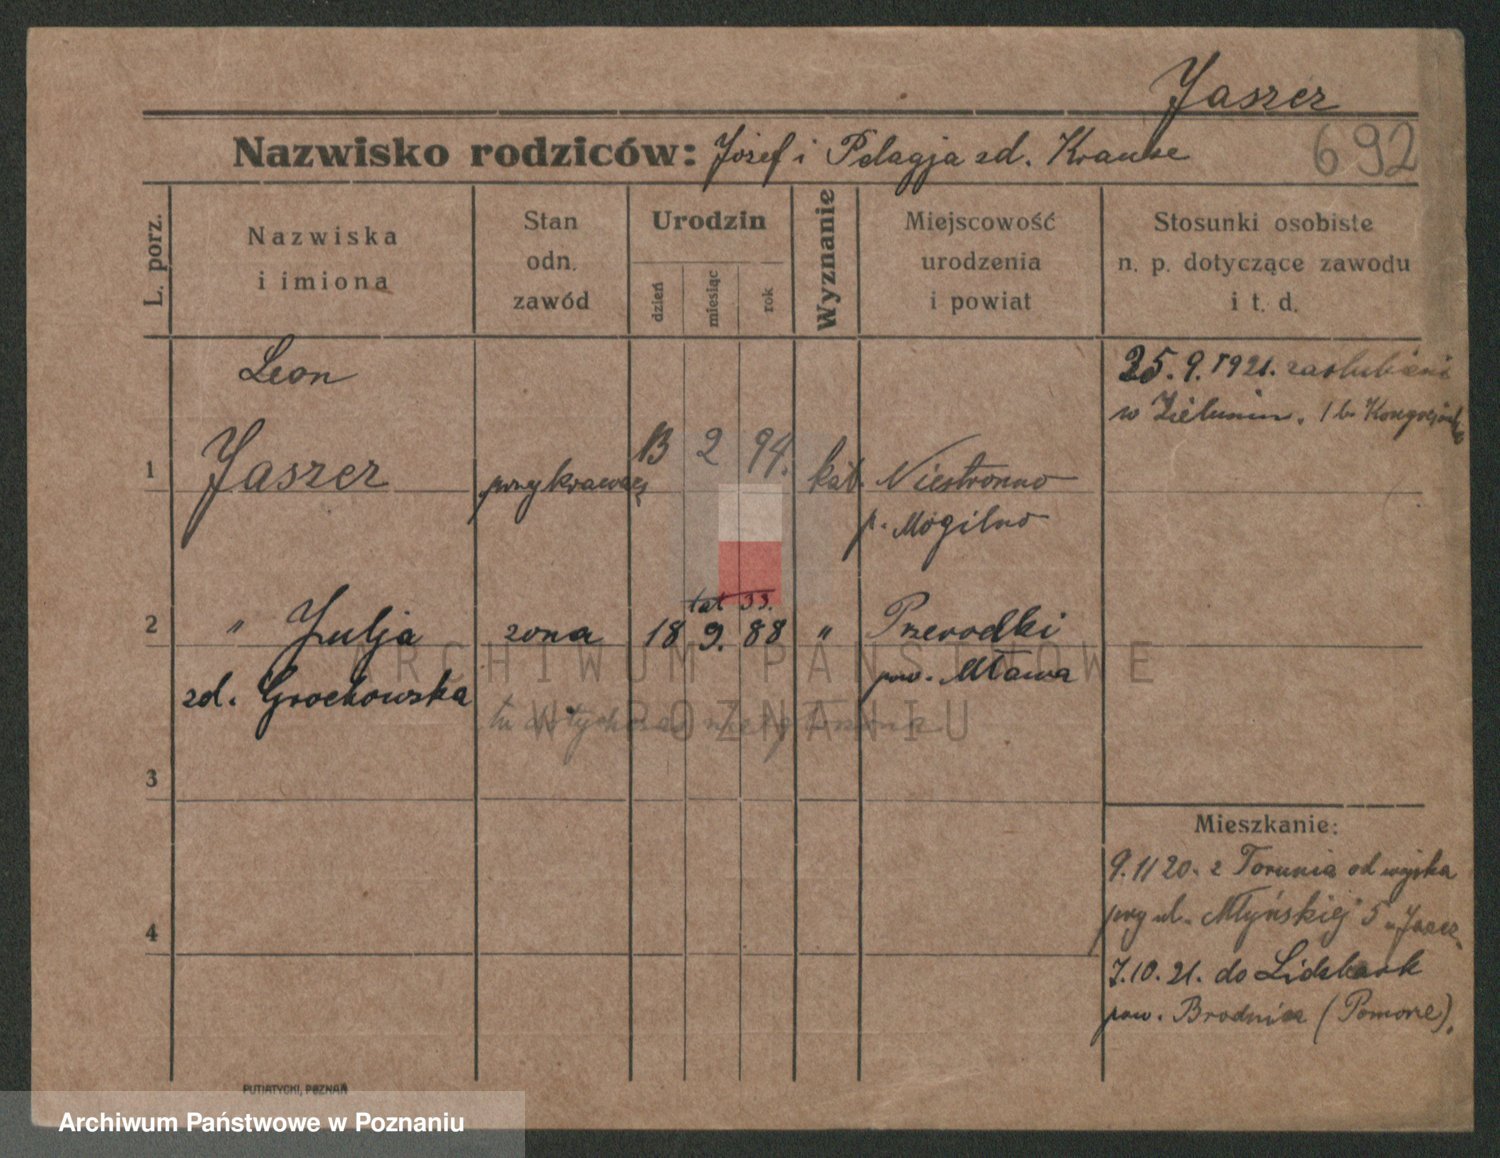 Jaszer
Nazwisko rodziców: Józef i Pelagja zd. Krause
692
L. porz.
Nazwiska
i imiona
Stan
odn.
zawód
Urodzin
dzień
miesiąc
rok
Wyznanie
Miejscowość
urodzenia
i powiat
Stosunki osobiste
n. p. dotyczące zawodu
i t. d.
Leon
25. 9. 1921. zaslubieni
w Zieluniu.
1 Jaszer 13 2 94. kat. Niestronno
p. Mogilno
lat 33.
2 " Julja żona 18 9. 88 " Przerodki
zd. Grochowska pow. Mława
ARCHIWUM PAŃSTWOWE
W POZNANIU
3
Mieszkanie:
9. 11 20. z Torunia od wojska
przy ul. Młyńskiej 5
4
7. 10. 21. do Lidzbark
pow. Brodnica (Pomorze).
PUTIATYCKI, POZNAŃ
Archiwum Państwowe w Poznaniu